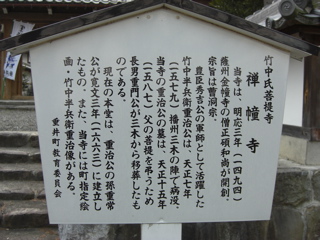 竹中氏菩提寺
禅幢寺
当寺は、明応三年(一四九四)
薩州金幢寺の僧正碩和尚が開創。
宗旨は曹洞宗。
豊臣秀吉公の軍師として活躍した
竹中半兵衛重治公は、天正七年
(一五七九)播州三木の陣で病没、
当寺の重治公の墓は、天正十五年
(一五八七)父の菩提を弔うため
長男重門公が三木から移葬したも
のである。
現在の本堂は、重治公の孫重常
公が寛文三年(一六六三)に建立し
たもの。また、当寺には町指定絵
画・竹中半兵衛重治像がある。
垂井町教育委員会